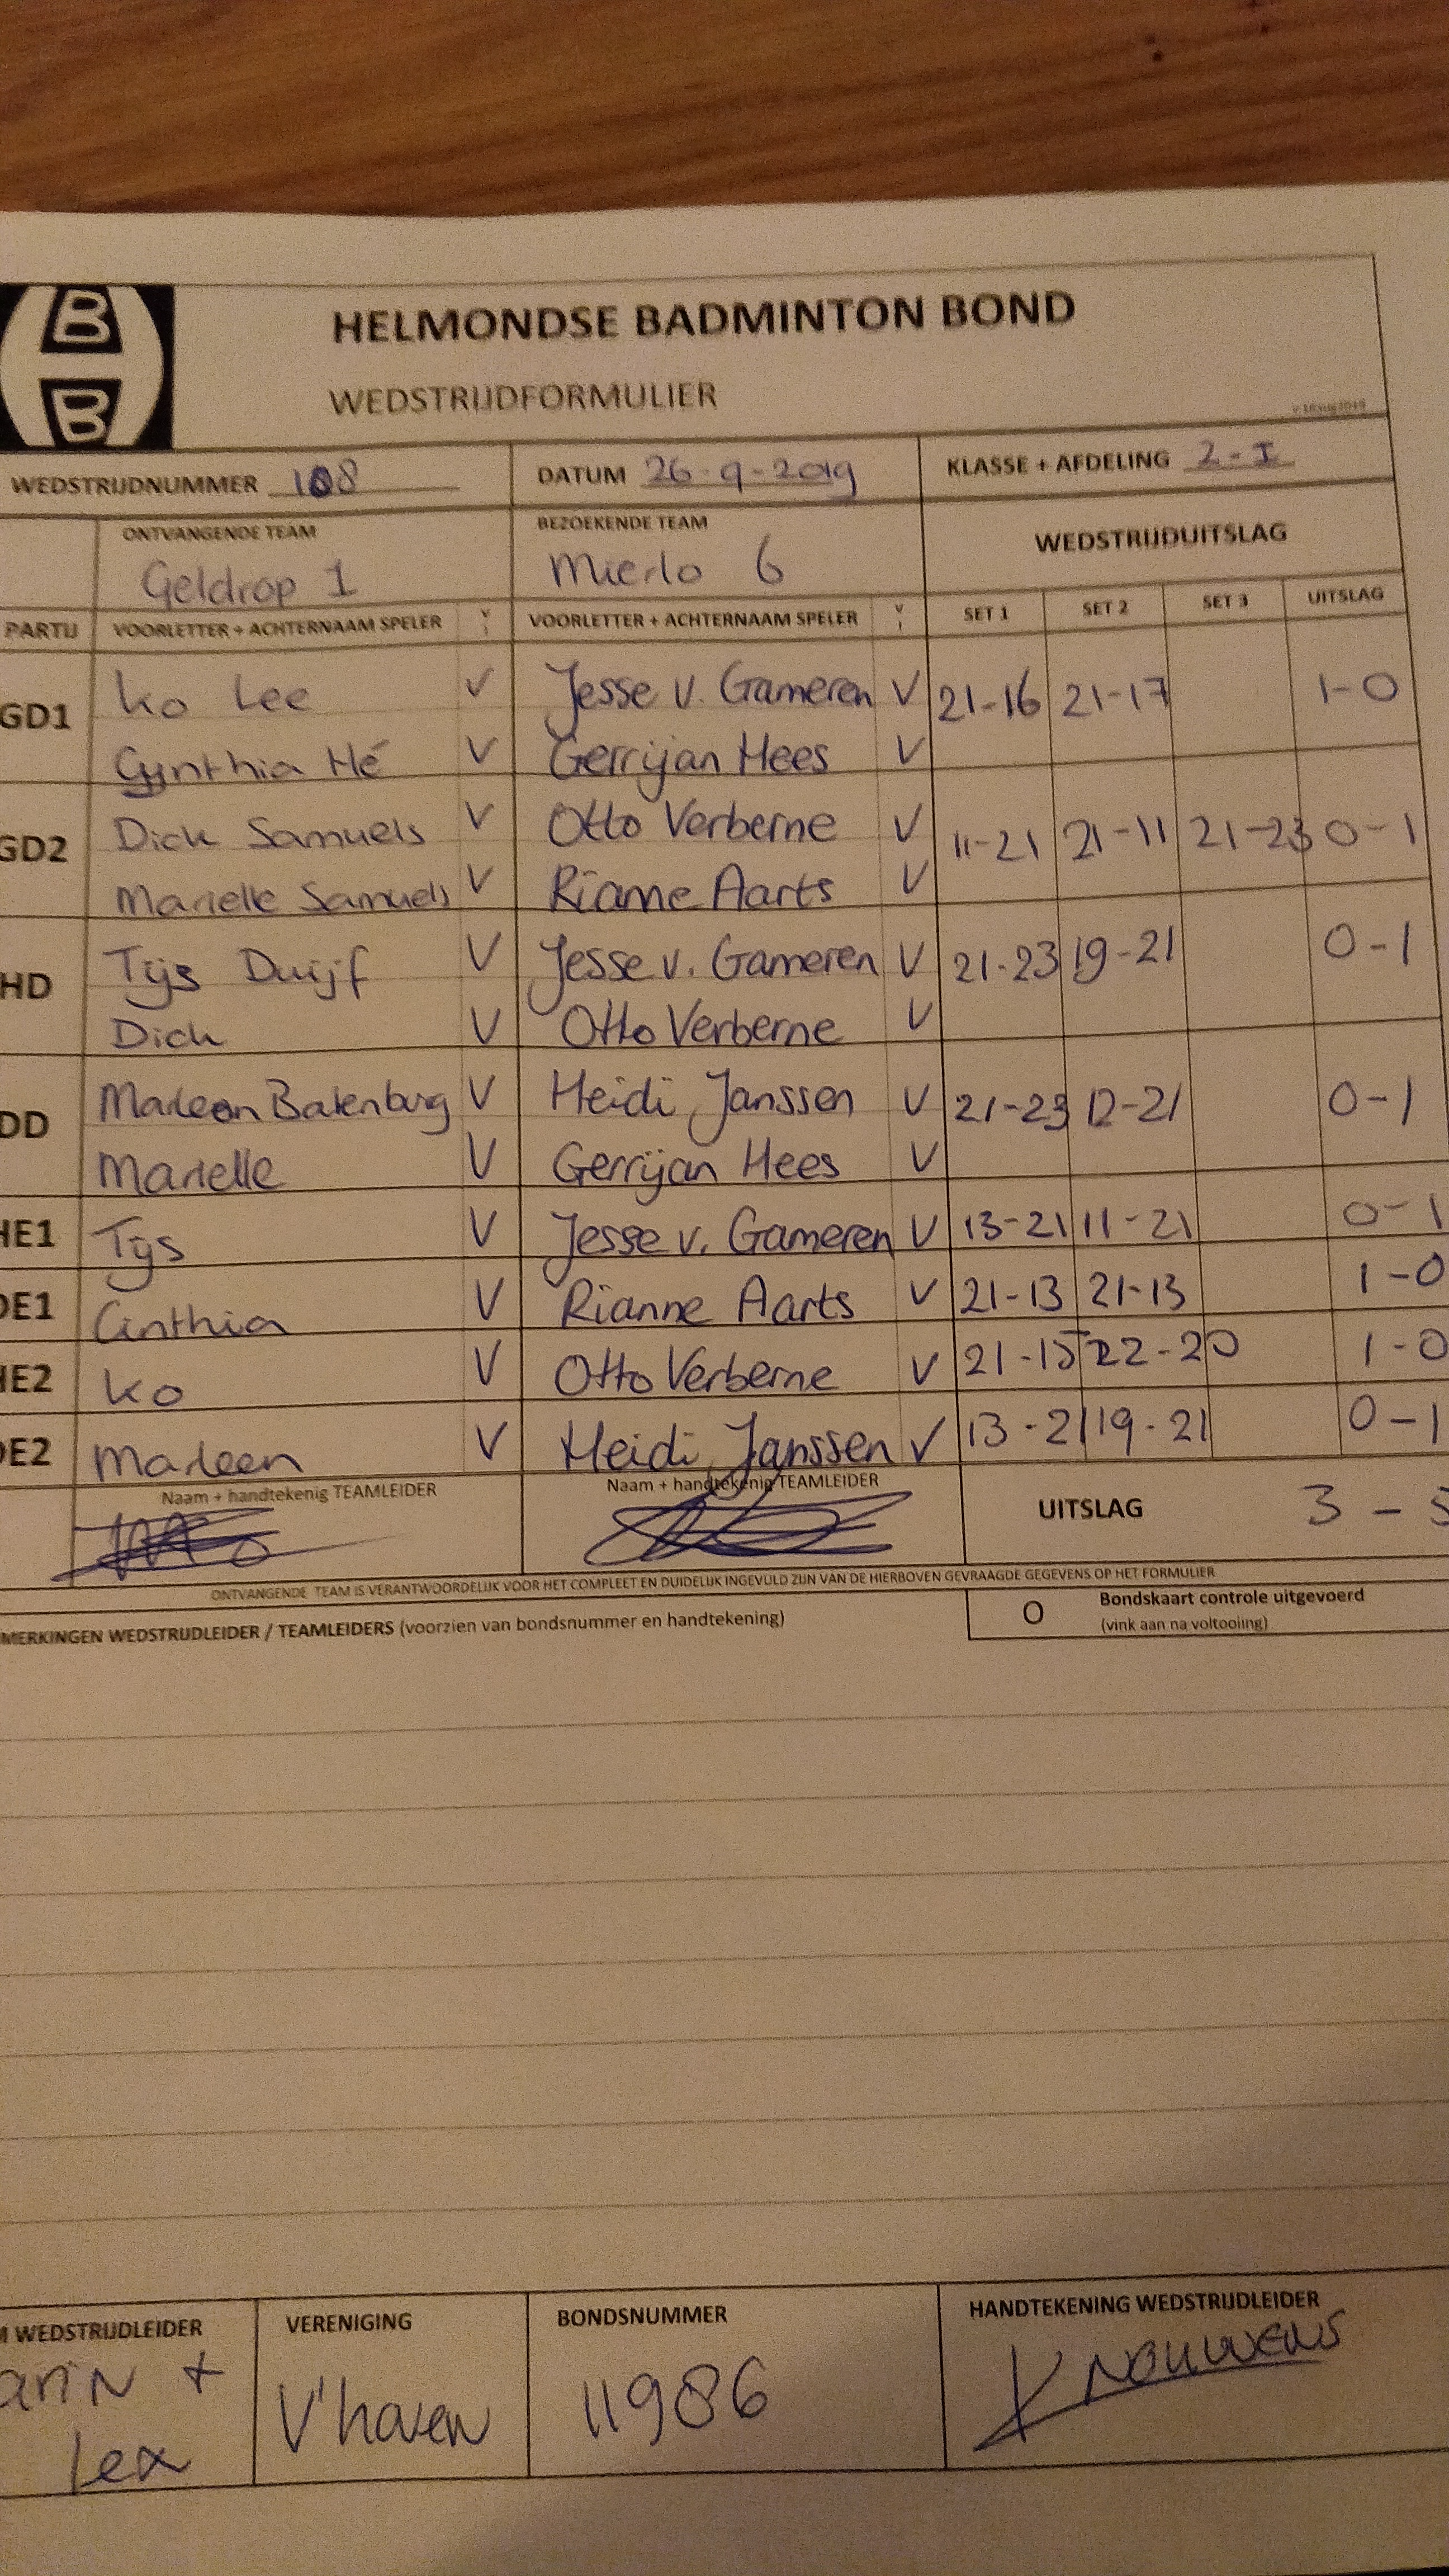 B
B
HELMONDSE BADMINTON BOND
WEDSTRIJDFORMULIER
WEDSTRIJDNUMMER 108 DATUM 26-9-2019 KLASSE + AFDELING 2-I
ONTVANGENDE TEAM BEZOEKENDE TEAM WEDSTRIJDUITSLAG
Geldrop 1 Mierlo 6
PARTIJ VOORLETTER + ACHTERNAAM SPELER V VOORLETTER + ACHTERNAAM SPELER V SET 1 SET 2 SET 3 UITSLAG
GD1 Ko Lee V Jesse v. Gameren V 21-16 21-17 1-0
Cynthia Hé V Gerrijan Hees V
GD2 Dick Samuels V Otto Verberne V 11-21 21-11 21-23 0-1
Marielle Samuels V Rianne Aarts V
HD Tijs Duijf V Jesse v. Gameren V 21-23 19-21 0-1
Dick V Otto Verberne V
DD Marleen Batenburg V Heidi Janssen V 21-23 12-21 0-1
Marielle V Gerrijan Hees V
HE1 Tijs V Jesse v. Gameren V 13-21 11-21 0-1
DE1 Cinthia V Rianne Aarts V 21-13 21-13 1-0
HE2 Ko V Otto Verberne V 21-15 22-20 1-0
DE2 Marleen V Heidi Janssen V 13-21 19-21 0-1
Naam + handtekenig TEAMLEIDER Naam + handtekenig TEAMLEIDER UITSLAG 3 - 5
ONTVANGENDE TEAM IS VERANTWOORDELIJK VOOR HET COMPLEET EN DUIDELIJK INGEVULD ZIJN VAN DE HIERBOVEN GEVRAAGDE GEGEVENS OP HET FORMULIER
MERKINGEN WEDSTRIJDLEIDER / TEAMLEIDERS (voorzien van bondsnummer en handtekening) O Bondskaart controle uitgevoerd
(vink aan na voltooiing)
M WEDSTRIJDLEIDER VERENIGING BONDSNUMMER HANDTEKENING WEDSTRIJDLEIDER
ariN + lex V'haven 11986 K Nouwens